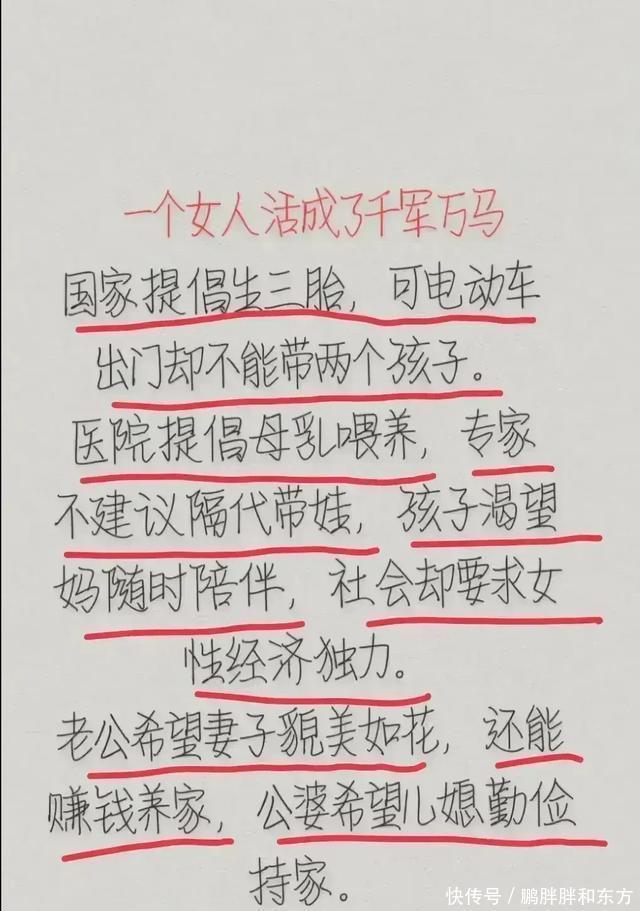 一个女人活成了千军万马
国家提倡生三胎，可电动车
出门却不能带两个孩子。
医院提倡母乳喂养，专家
不建议隔代带娃，孩子渴望
妈随时陪伴，社会却要求女
性经济独力。
老公希望妻子貌美如花，还能
赚钱养家，公婆希望儿媳勤俭
持家。
快传号／鹏胖胖和东方